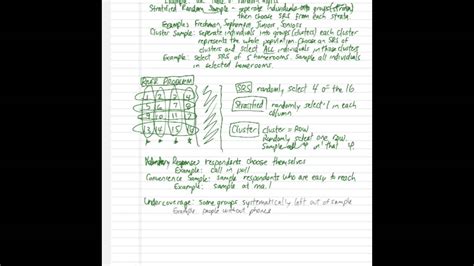 Example: use Table of random digits
Stratified Random Sample - seperate individuals into groups (strata)
then choose SRS from each strata
Example: Freshmen, Sophomores, Juniors, Seniors
Cluster Sample: seperate individuals into groups (clusters) each cluster
represents the whole population. Choose an SRS
of clusters and select ALL individuals in those clusters
Example: select SRS of 5 homerooms. Sample all individuals
in selected homerooms.
RIVER PROBLEM
SRS randomly select 4 of the 16
1 2 3 4
Stratified randomly select 1 in each
5 6 7 8
column
9 10 11 12
Cluster cluster = Row
13 14 15 16
Randomly select one row.
Sample all in that
Voluntary Response: respondents choose themselves
Example: call in poll
Convenience Sample: sample respondents who are easy to reach
Example: sample at mall
Undercoverage: Some groups systematically left out of sample
Example: people without phones